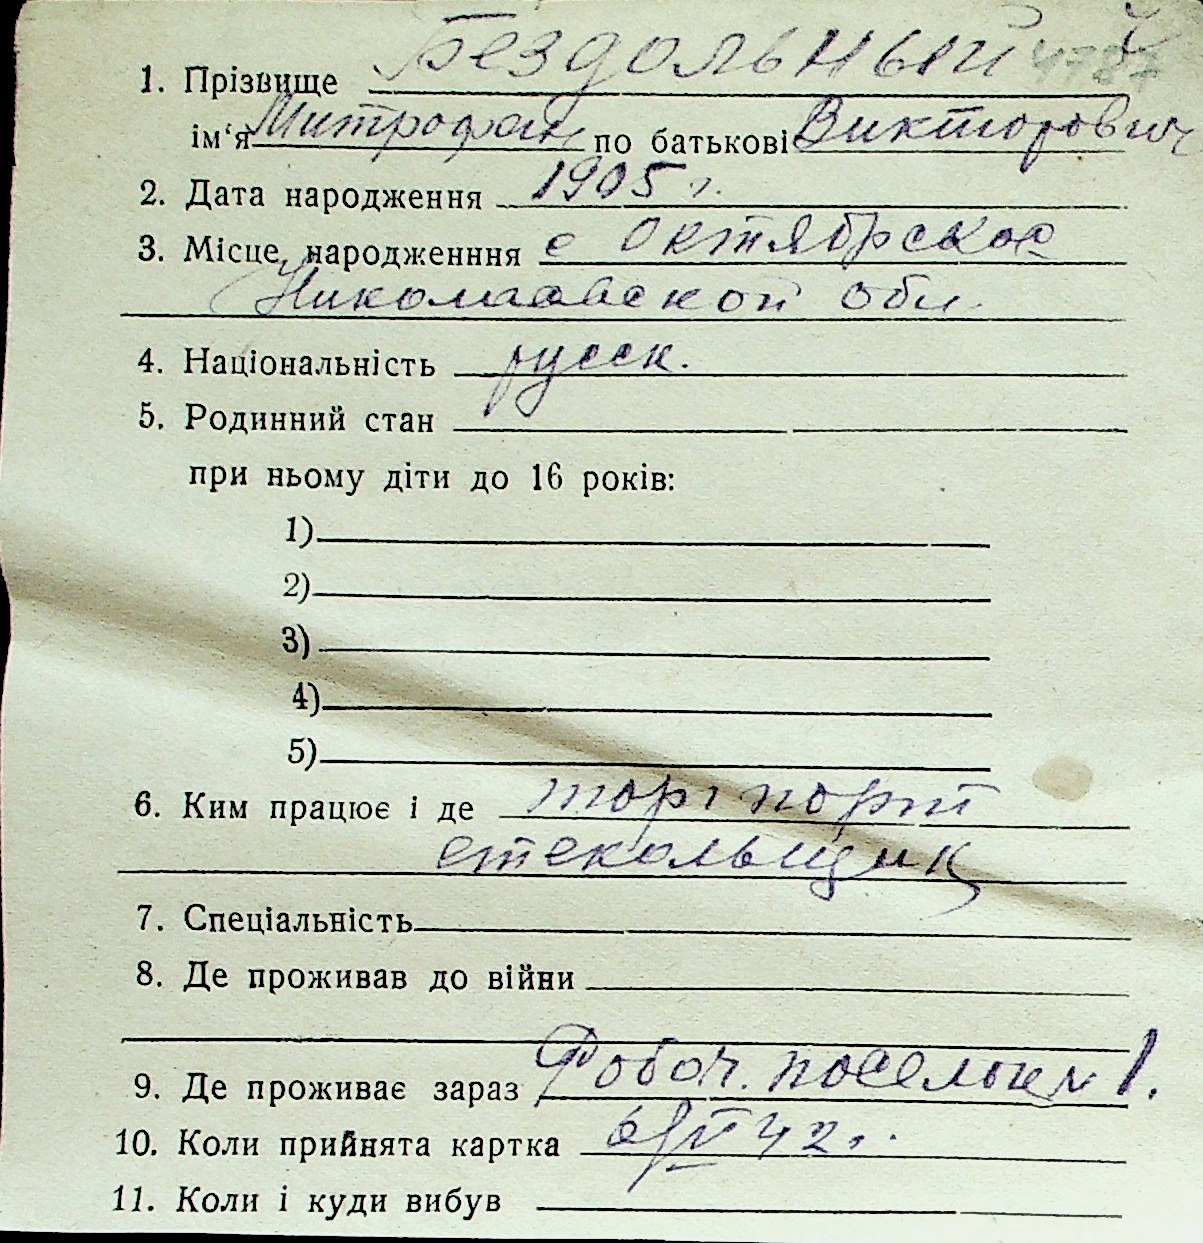 1. Прізвище Бездольный 4787
ім‘я Митрофан по батькові Викторович
2. Дата народження 1905 г.
3. Місце народженння с Октябрское
Николаевской обл.
4. Національність русск.
5. Родинний стан
при ньому діти до 16 років:
1)
2)
3)
4)
5)
6. Ким працює і де торг порт
стекольщик
7. Спеціальність
8. Де проживав до війни
9. Де проживає зараз Робоч. поселок № 1.
10. Коли прийнята картка 6/IV 42 г.
11. Коли і куди вибув